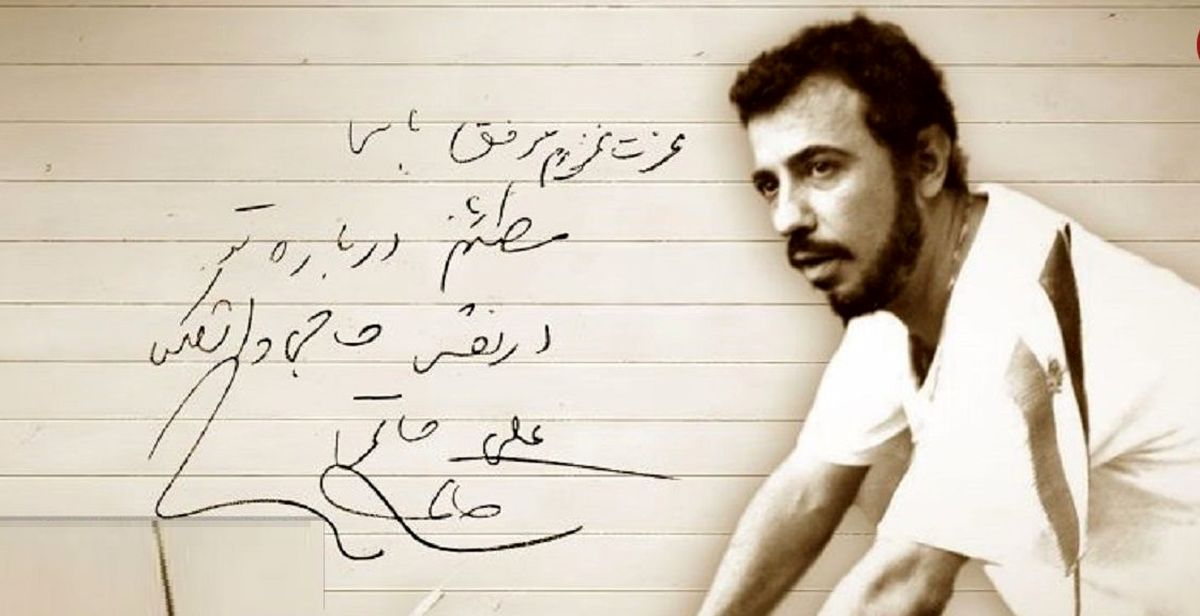 عزت عزیزم موفق باشی
مطمئنم درباره تو
از نقش حاجی واشنگتن
علی حاتمی